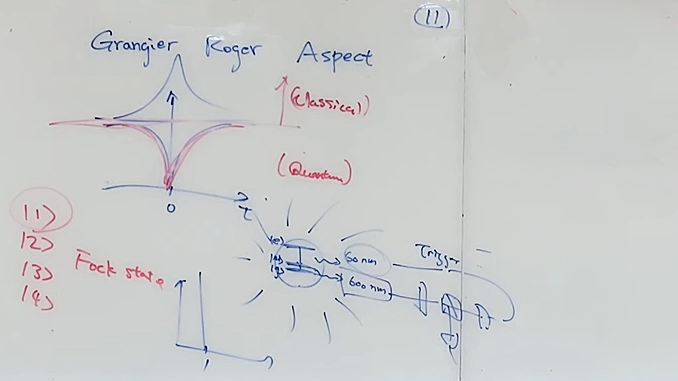 11
Grangier Roger Aspect
(Classical)
(Quantum)
0
τ
|1>
|2>
|3>
|4>
Fock state
|e>
60 nm
600 nm
Trigger
1